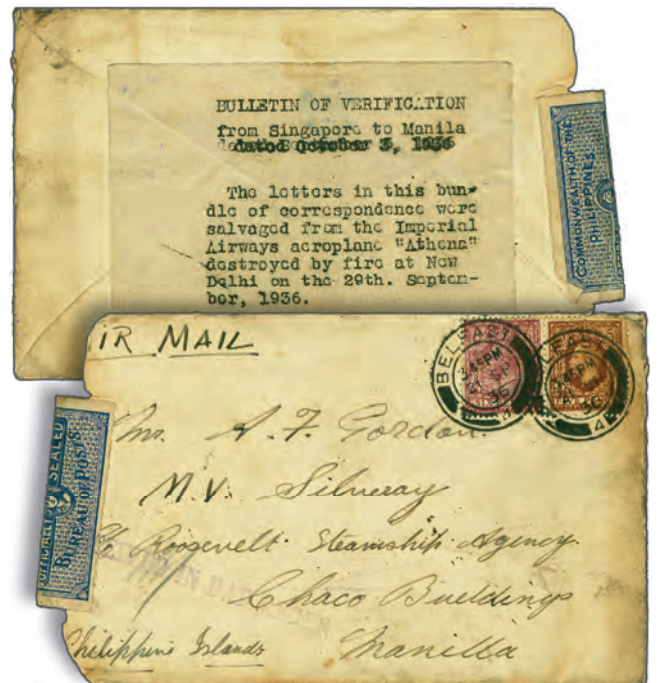 BULLETIN OF VERIFICATION
from Singapore to Manila
dated October 3, 1936
The letters in this bun-
dle of correspondence were
salvaged from the Imperial
Airways aeroplane "Athena"
destroyed by fire at New
Delhi on the 29th. Septem-
ber, 1936.
COMMONWEALTH OF THE
PHILIPPINES
IR MAIL
BELFAST
3.45PM
21 SP
36
4
FAST
3.45PM
36
4
A. F. Gordon.
M.V. Silveray
c/o Roosevelt Steamship Agency.
Chaco Buildings
Philippine Islands Manilla
OFFICIALLY SEALED
BUREAU OF POSTS
IN